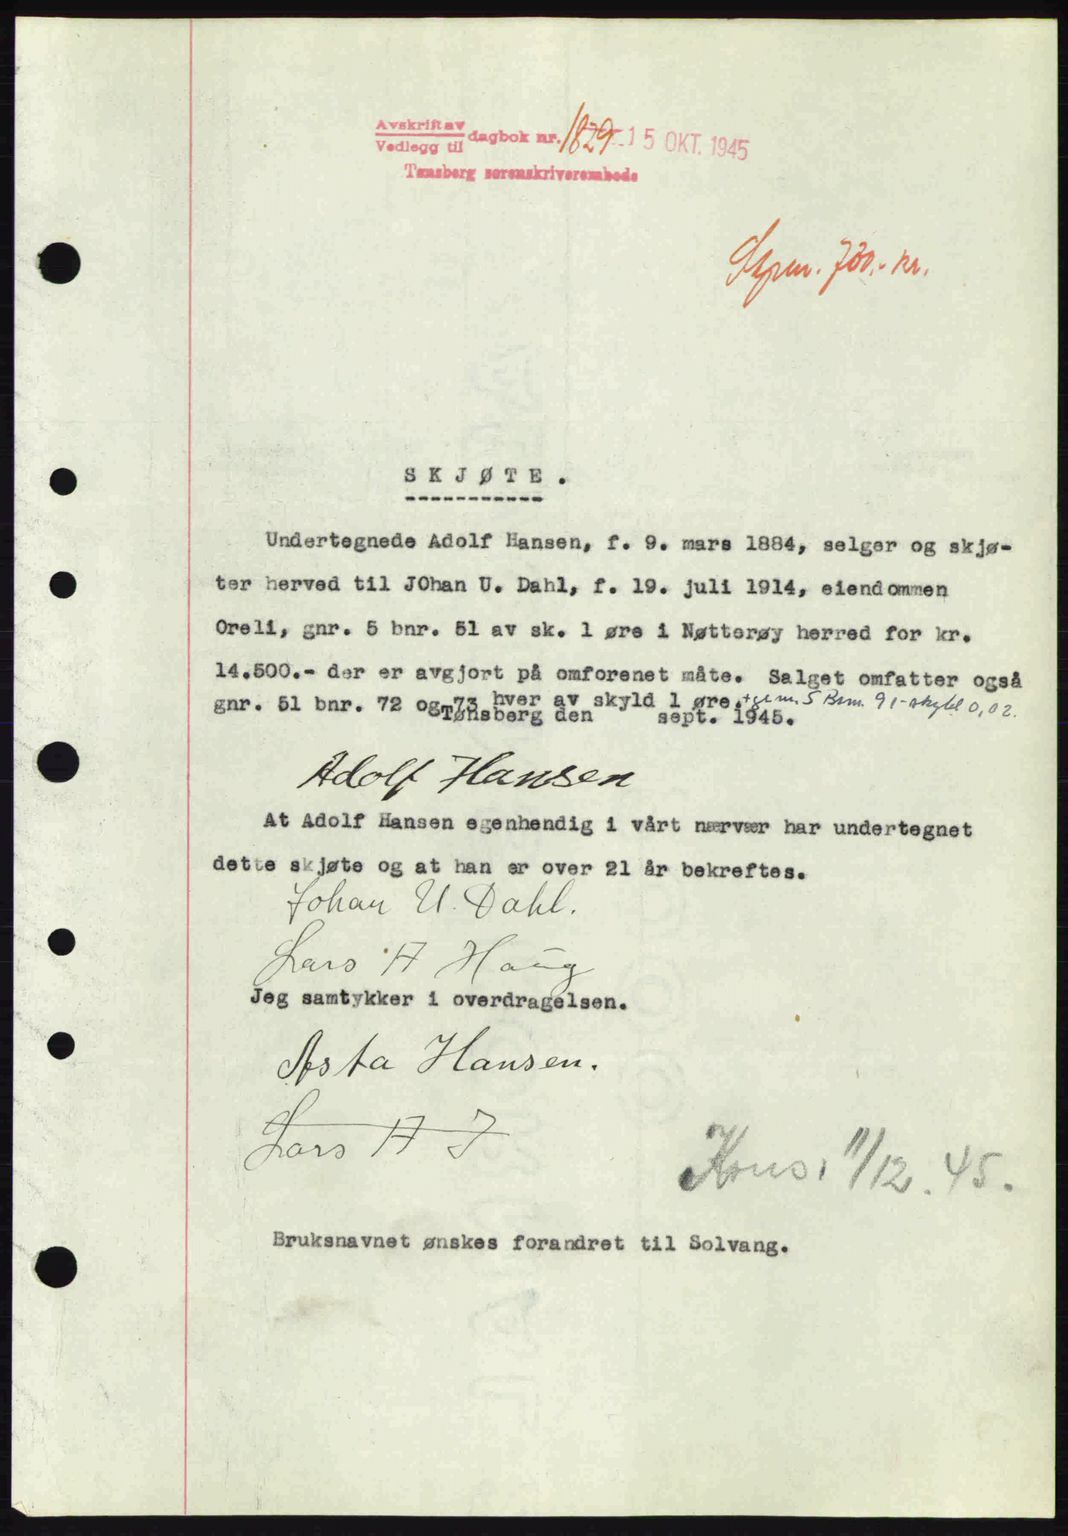 Avskrift av
Vedlegg til dagbok nr. 1829 - 15 OKT. 1945
Tønsberg sorenskriverembede
700.- kr.
SKJØTE.
Undertegnede Adolf Hansen, f. 9. mars 1884, selger og skjø-
ter herved til JOhan U. Dahl, f. 19. juli 1914, eiendommen
Oreli, gnr. 5 bnr. 51 av sk. 1 øre i Nøtterøy herred for kr.
14.500.- der er avgjort på omforenet måte. Salget omfatter også
gnr. 51 bnr. 72 og 73 hver av skyld 1 øre. + g nr. 5 Bnr. 91 - skyld 0,02.
Tønsberg den sept. 1945.
Adolf Hansen
At Adolf Hansen egenhendig i vårt nærvær har undertegnet
dette skjøte og at han er over 21 år bekreftes.
Johan U. Dahl.
Lars A Haug
Jeg samtykker i overdragelsen.
Asta Hansen.
Lars A J
11/12. 45.
Bruksnavnet ønskes forandret til Solvang.